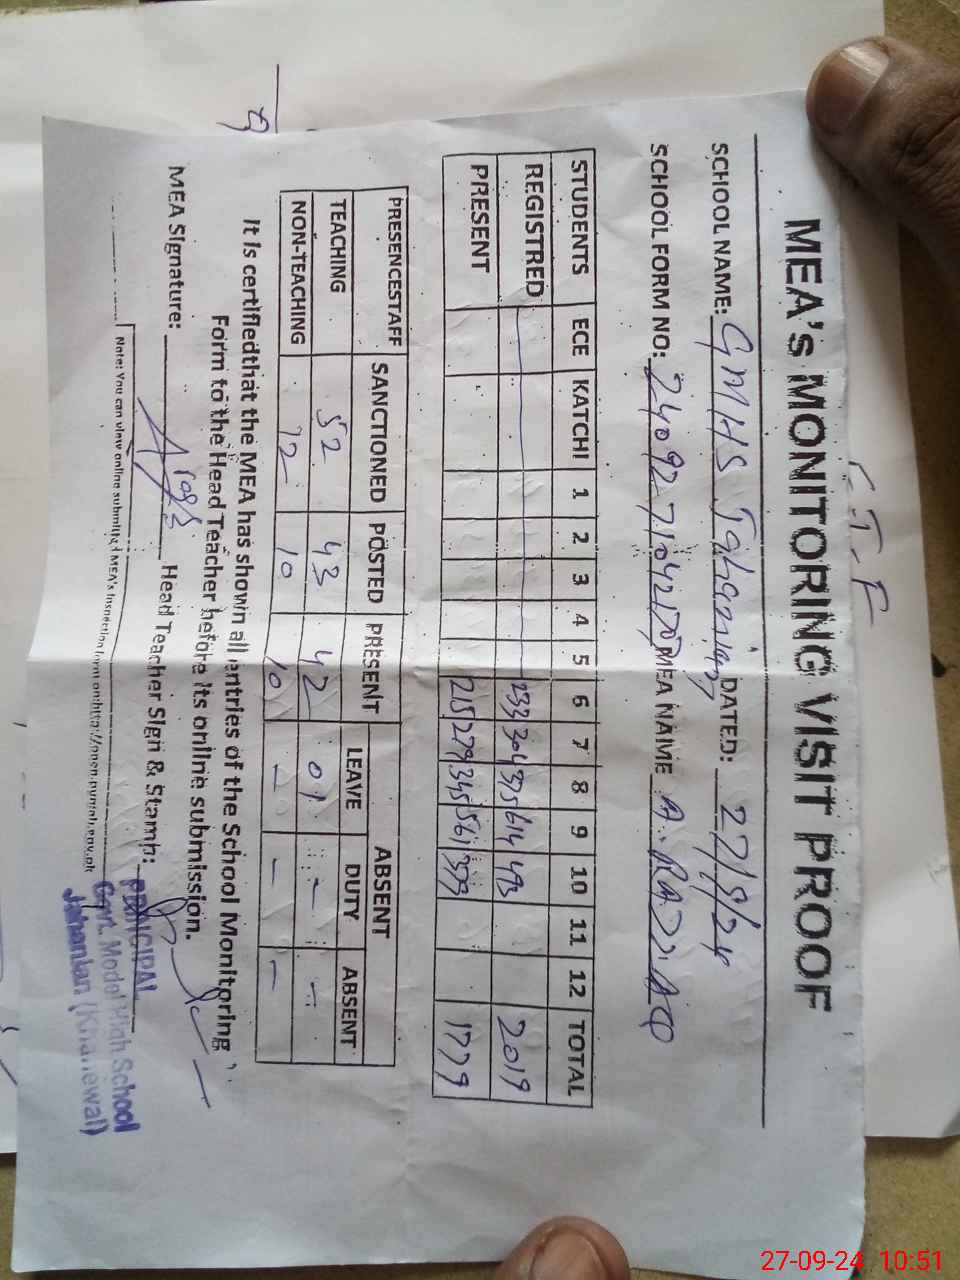 MEA's MONITORING VISIT PROOF
SCHOOL NAME: GMHS Jahanian DATED: 27/9/24
SCHOOL FORM NO: MEA NAME A. RAZZAQ
STUDENTS ECE KATCHI 1 2 3 4 5 6 7 8 9 10 11 12 TOTAL
REGISTRED 233 304 375 614 493 2019
PRESENT 215 279 345 561 379 1779
PRESENCESTAFF SANCTIONED POSTED PRESENT ABSENT
LEAVE DUTY ABSENT
TEACHING 52 43 42 01 - -
NON-TEACHING 12 10 10 - - -
It is certifiedthat the MEA has shown all entries of the School Monitoring
Form to the Head Teacher before its online submission.
MEA Signature: Head Teacher Sign & Stamp:
PRINCIPAL
Govt. Model High School
Jahanian (Khanewal)
Note: You can view online submitted MEA's Inspection form on:http://open.pmiu.gov.pk
27-09-24 10:51